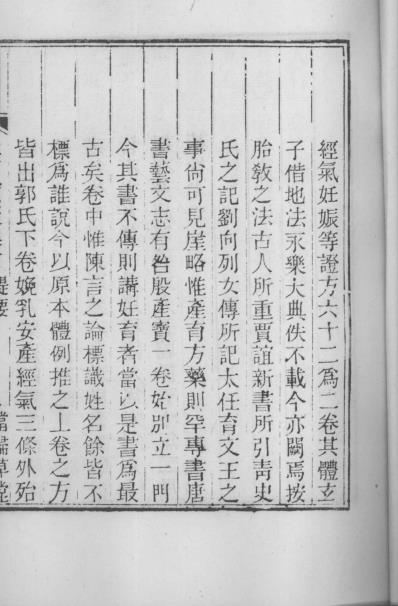 經氣妊娠等證方六十二爲二卷其體玄
子借地法永樂大典佚不載今亦闕焉按
胎敎之法古人所重賈誼新書所引靑史
氏之記劉向列女傳所記太任育文王之
事尙可見崖略惟產育方藥則罕專書唐
書藝文志有昝殷產寶一卷始別立一門
今其書不傳則講妊育者當以是書爲最
古矣卷中惟陳言之論標識姓名餘皆不
標爲誰說今以原本體例推之上卷之方
皆出郭氏下卷娩乳安產經氣三條外殆
提要
當歸草堂